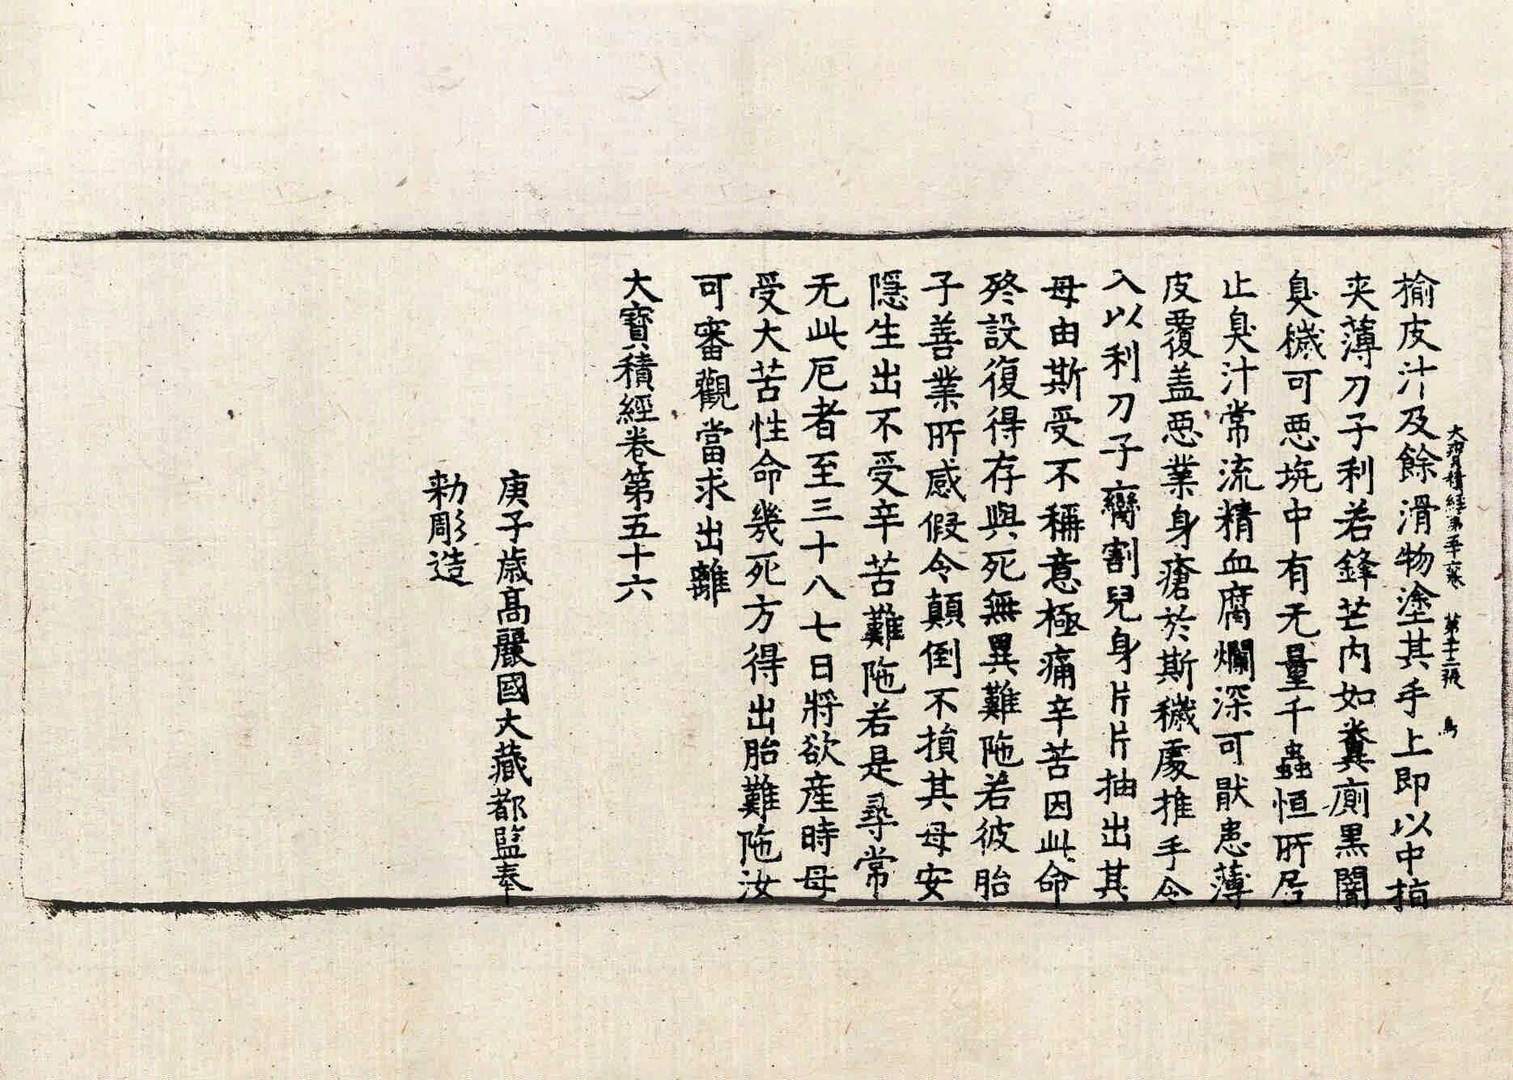 大寶積經第五十六卷　第二十二張　鳥
榆皮汁及餘滑物塗其手上即以中指
夾薄刀子利若鋒芒內如糞廁黑闇
臭穢可惡坑中有无量千蟲恒所居
止臭汁常流精血腐爛深可猒患薄
皮覆盖惡業身瘡於斯穢處推手令
入以利刀子臠割兒身片片抽出其
母由斯受不稱意極痛辛苦因此命
終設復得存與死無異難陁若彼胎
子善業所感假令顛倒不損其母安
隱生出不受辛苦難陁若是尋常
无此厄者至三十八七日將欲産時母
受大苦性命幾死方得出胎難陁汝
可審觀當求出離
大寶積經卷第五十六
庚子歲高麗國大藏都監奉
勅彫造